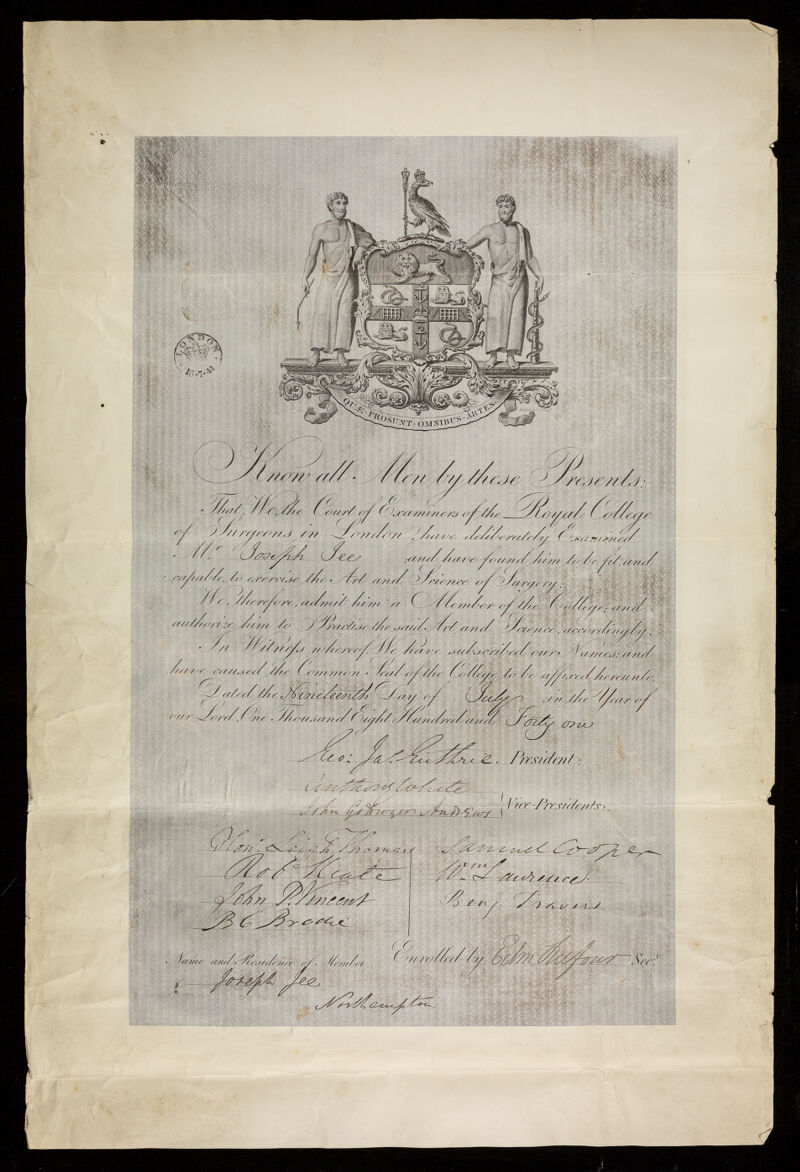 QUÆ·PROSUNT·OMNIBUS·ARTES·
LONDON
16·7·41
Know all Men by these Presents:
That, We, the Court of Examiners of the Royal College
of Surgeons in London, have deliberately Examined
Mr. Joseph Jee and have found him to be fit, and
capable, to exercise the Art and Science of Surgery:
We, therefore, admit him a Member of the College; and
authorize him to Practise the said Art and Science, accordingly.
In Witness whereof We have subscribed our Names; and
have caused the Common Seal of the College to be affixed hereunto:
Dated the Nineteenth Day of July in the Year of
our Lord, One Thousand Eight Hundred and Forty one
Geo: Jas. Guthrie. President:
Anthony White
John Andrews Vice-Presidents:
Honr. Leigh Thomas Samuel Cooper
Robt. Keate Wm Lawrence
John P. Vincent Benj Travers
B C Brodie
Name and Residence of Member Enrolled by Edm Belfour Secy.
Joseph Jee
Northampton